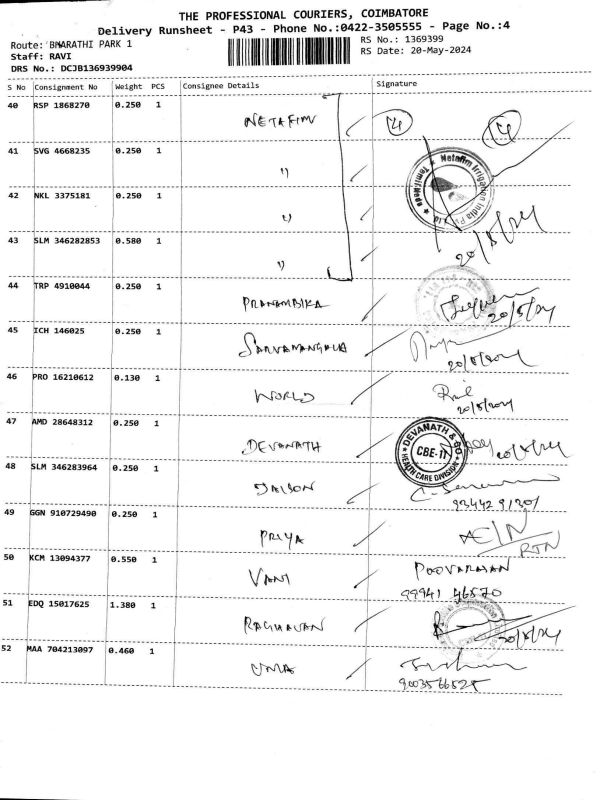 THE PROFESSIONAL COURIERS, COIMBATORE
Delivery Runsheet - P43 - Phone No.:0422-3505555 - Page No.:4
Route: BHARATHI PARK 1
RS No.: 1369399
Staff: RAVI
RS Date: 20-May-2024
DRS No.: DCJB136939904
S No Consignment No Weight PCS Consignee Details Signature
40 RSP 1868270 0.250 1 NETAFIM 4 4
41 SVG 4668235 0.250 1 "
Netafim Irrigation India
Tamil Nadu
42 NKL 3375181 0.250 1 "
43 SLM 346282853 0.580 1 " 20/5/24
44 TRP 4910044 0.250 1 PRANAMBIKA 20/5/24
45 ICH 146025 0.250 1 SARVAMANGALA 20/5/2024
46 PRO 16210612 0.130 1 WORLD 20/5/2024
47 AMD 28648312 0.250 1 DEVANATH
DEVANATH & CO
CBE-11
HEALTH CARE DIVISION
48 SLM 346283964 0.250 1
49 GGN 910729490 0.250 1 PRIYA RTN
50 KCM 13094377 0.550 1 VANI POOVARASAN
99941 46570
51 EDQ 15017625 1.380 1 RAGHAVAN 20/5/24
52 MAA 704213097 0.460 1 UMA
9003566525